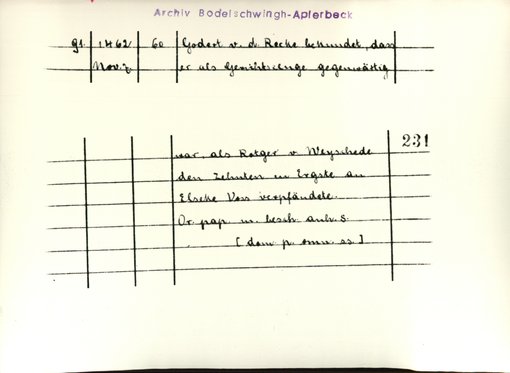 Archiv Bodelschwingh-Aplerbeck
91. 1462 60 Godert v. d. Recke bekundet, dass
Nov. 7. er als Gerichtszeuge gegenwärtig
231
war, als Rotger v. Weyschede
den Zehnten in Ergste an
Elseke Voss verpfändete.
Or. pap. m. besch. anh. S.
[dom. p. omn. ss.]